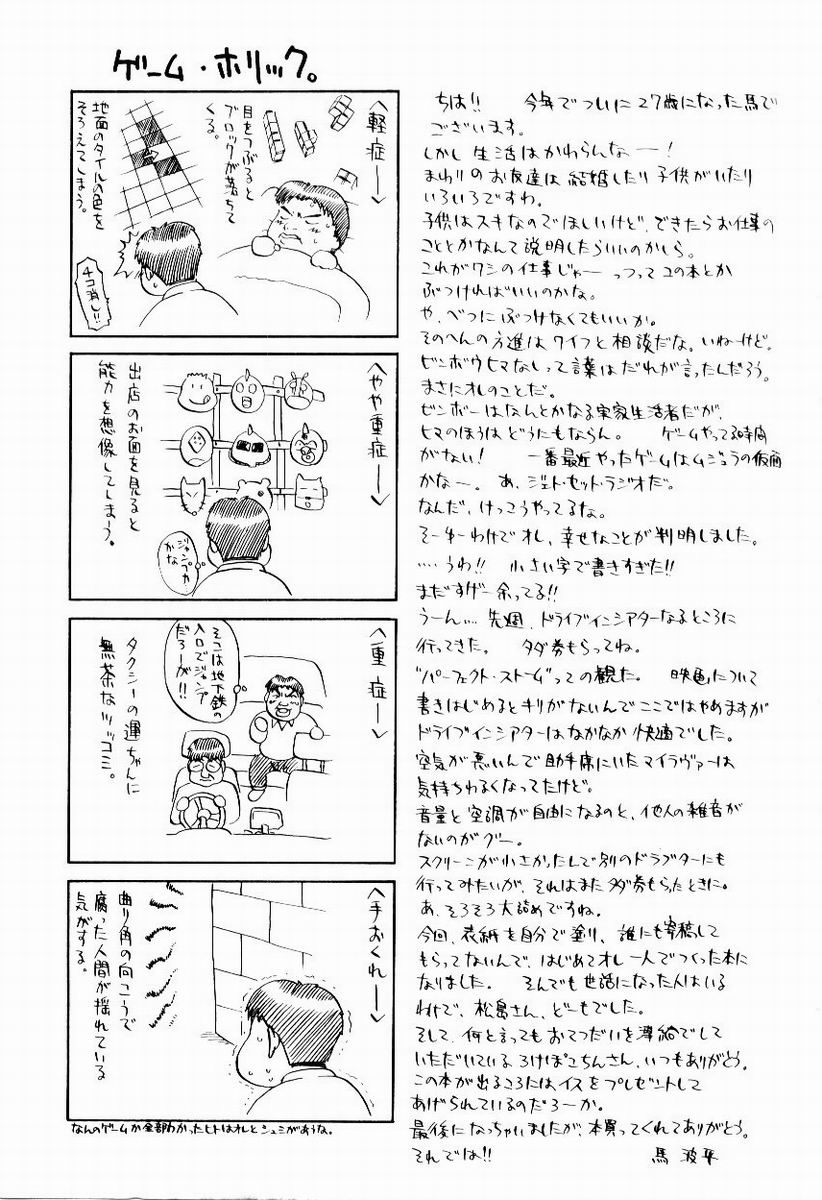 ゲーム・ホリック。
〈軽症〉
目をつぶると
ブロックが落ちて
くる。
地面のタイルの色を
そろえてしまう。
4コ消し!!
〈やや重症〉
出店のお面を見ると
能力を想像してしまう。
ジャンプカ
かな
〈重症〉
そこは地下鉄の
入口でジャンプ
だろーが!!
タクシーの運ちゃんに
無茶なツッコミ。
〈手おくれ〉
曲り角の向こうで
腐った人間が揺れている
気がする。
なんのゲームか全部わかったヒトはオレとシュミがあうな。
ちは!! 今年でついに27歳になった馬で
ございます。
しかし生活はかわらんなー!
まわりのお友達は結婚したり子供がいたり
いろいろですわ。
子供はスキなのでほしいけど、できたらお仕事の
こととかなんて説明したらいいのかしら。
これがワシの仕事じゃー っつってコの本とか
ぶつければいいのかな。
や、べつにぶつけなくてもいいか。
そのへんの方進はワイフと相談だな。いねーけど。
ビンボウヒマなしって言葉はだれが言ったんだろう。
まさにオレのことだ。
ビンボーはなんとかなる実家生活者だが、
ヒマのほうはどうにもならん。 ゲームやってる時間
がない! 一番最近やったゲームはムジュラの仮面
かなー。あ、ジェト・セット・ラジオだ。
なんだ、けっこうやってるな。
そーゆーわけでオレ、幸せなことが判明しました。
‥‥うわ!! 小さい字で書きすぎた!!
まだすげー余ってる!!
うーん… 先週、ドライブインシアターなるところに
行ってきた。 タダ券もらってね。
"パーフェクト・ストーム"っての観た。 映画について
書きはじめるとキリがないんでここではやめますが
ドライブインシアターはなかなか快適でした。
空気が悪いんで助手席にいたマイラヴァーは
気持ちわるくなってたけど。
音量と空調が自由になるのと、他人の雑音が
ないのがグー。
スクリーンが小さかったしで別のドラブターにも
行ってみたいが、それはまたタダ券もらたときに。
あ、そろそろ大詰めですね。
今回、表紙を自分で塗り、誰にも寄稿して
もらってないんで、はじめてオレ一人でつくった本に
なりました。 そんでも世話になった人はいる
わけで、松島さん、どーもでした。
そして、何と言ってもおてつだいを薄給でして
いただいている ろけぽこちんさん、いつもありがとう。
この本が出るころにはイスをプレゼントして
あげられているのだろーか。
最後になっちゃいましたが、本買ってくれてありがとう。
それでは!! 馬 波平